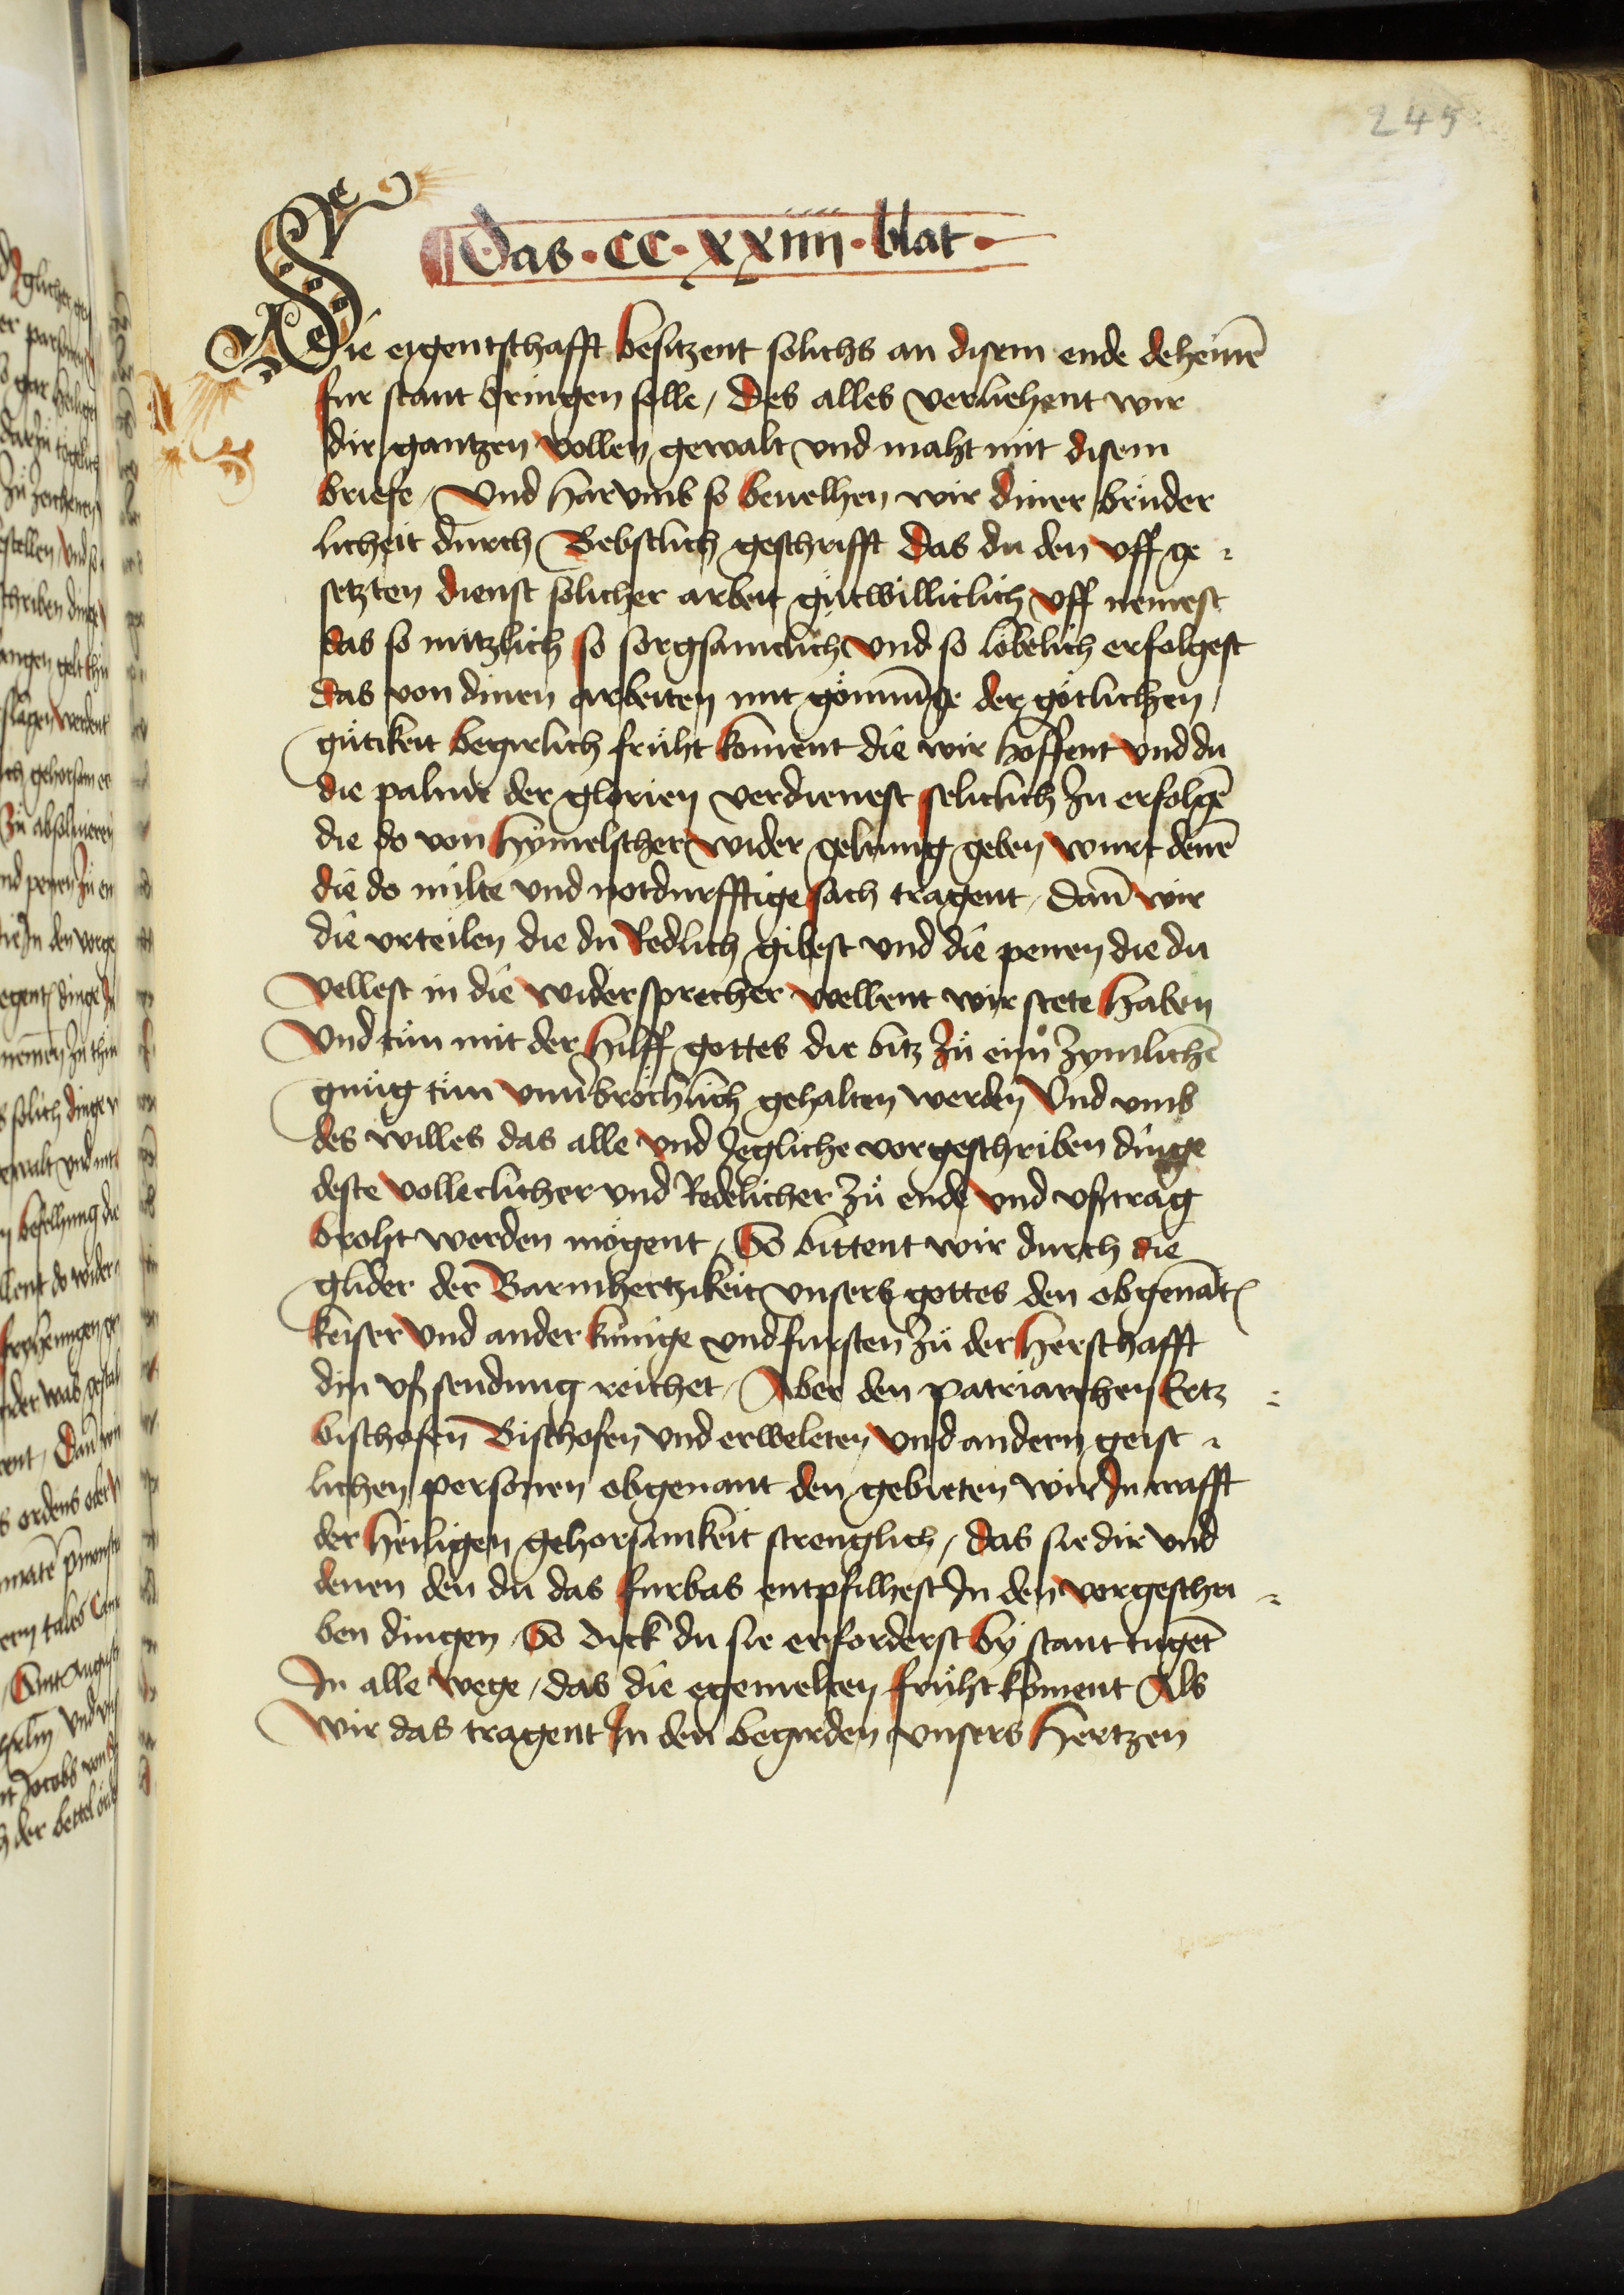 245
Das · CC · XXiiii · blat ·
Die eigentschafft besitzent solichs an disem ende deheinē
fur stant bringen solle / des alles verliehent wir
dir gantzen vollen gewalt vnd maht mit disem
briefe / Vnd harvmb so beuelhen wir diner brüder
licheit durch Bebstlich geschrifft das du den vff ge
setzten dienst solicher arbeit gütwilliclich vff nemest
das so nützlich so sorgsamclich vnd so lobelich erfolgest
das von dinen arbeiten mit der götlichen
gütikeit begirlich früht koment die wir hoffent vnd du
die palme der glorien verdienest seliclich zu erfolgē
die do von hymelscher wider geltung geben wurt denē
die do milte vnd notdurfftige sach tragent / dan̄ wir
die vrteilen die du Redlich gibest vnd die penen die du
vellest in die widersprecher wellent wir stete haben
vnd tün mit der hilff gottes die bitz zü eim̄ zymlichē
gnüg tün gehalten werden Vnd vmb
des willes das alle vnd Jegliche vorgeschriben dinge
deste volleclicher vnd Redelicher zü ende vnd vsztrag
broht werden mögent / So bittent wir durch die
glider der Barmhertzikeit vnsers gottes den obgenāt
keiser vnd ander künige vnd fursten zü der herschafft
din vszsendung reichet / Aber den patriarchen Ertz
bischofen Bischofen vnd erweleten vnd andern geist
lichen personen obgenant den gebieten wir Jn crafft
der heiligen gehorsamkeit strenglich / das sie dir vnd
denen den du das furbas entpfilhest Jn den vorgeschri
ben dingen / So dick du sie erforderst by stant tugēt
Jn alle wege / das die egemelten früht koment Als
wir das tragent Jn den begirden vnsers hertzen